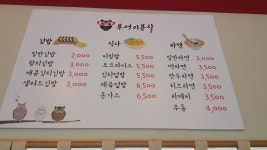 부엉이분식
김밥
일반김밥 2,000
참치김밥 3,000
매콤김치김밥 3,000
샐러드김밥 3,500
식사
비빔밥 5,500
오므라이스 5,500
김치덮밥 5,500
제육덮밥 6,500
돈가스 6,500
라면
일반라면 3,000
떡라면 3,500
만두라면 3,500
치즈라면 3,500
라제비 3,500
우동 4,000